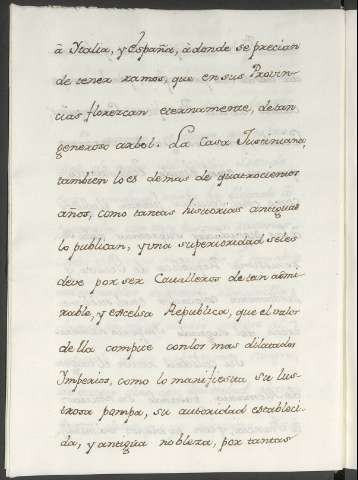 â Ytalia, y España, à donde se precian
de tener ramos, que en sus Provin-
cias florezcan eternamente, de tan
generoso arbol. La Casa Iustiniana,
tambien lo es de mas de quatrocientos
años, como tantas historias antiguas
lo publican, y una superioridad se les
deve por ser Cavalleros de tan admi-
rable, y excelsa Republica, que el valor
de lla compite con los mas dilatados
Ymperios, como lo manifiesta su lus-
trosa pompa, su autoridad estableci-
da, y antigua nobleza, por tantas